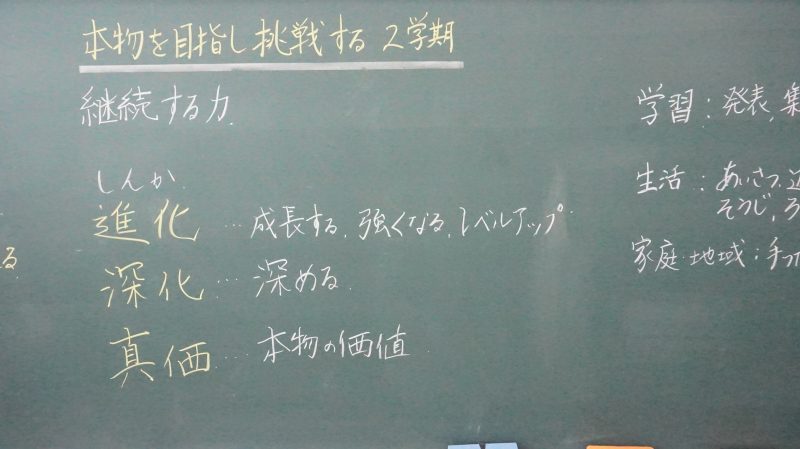 本物を目指し挑戦する 2学期
継続する力
しんか
進化 … 成長する、強くなる、レベルアップ
深化 … 深める
真価 … 本物の価値
る
学習：発表、集
生活：あいさつ、
そうじ、
家庭・地域：手